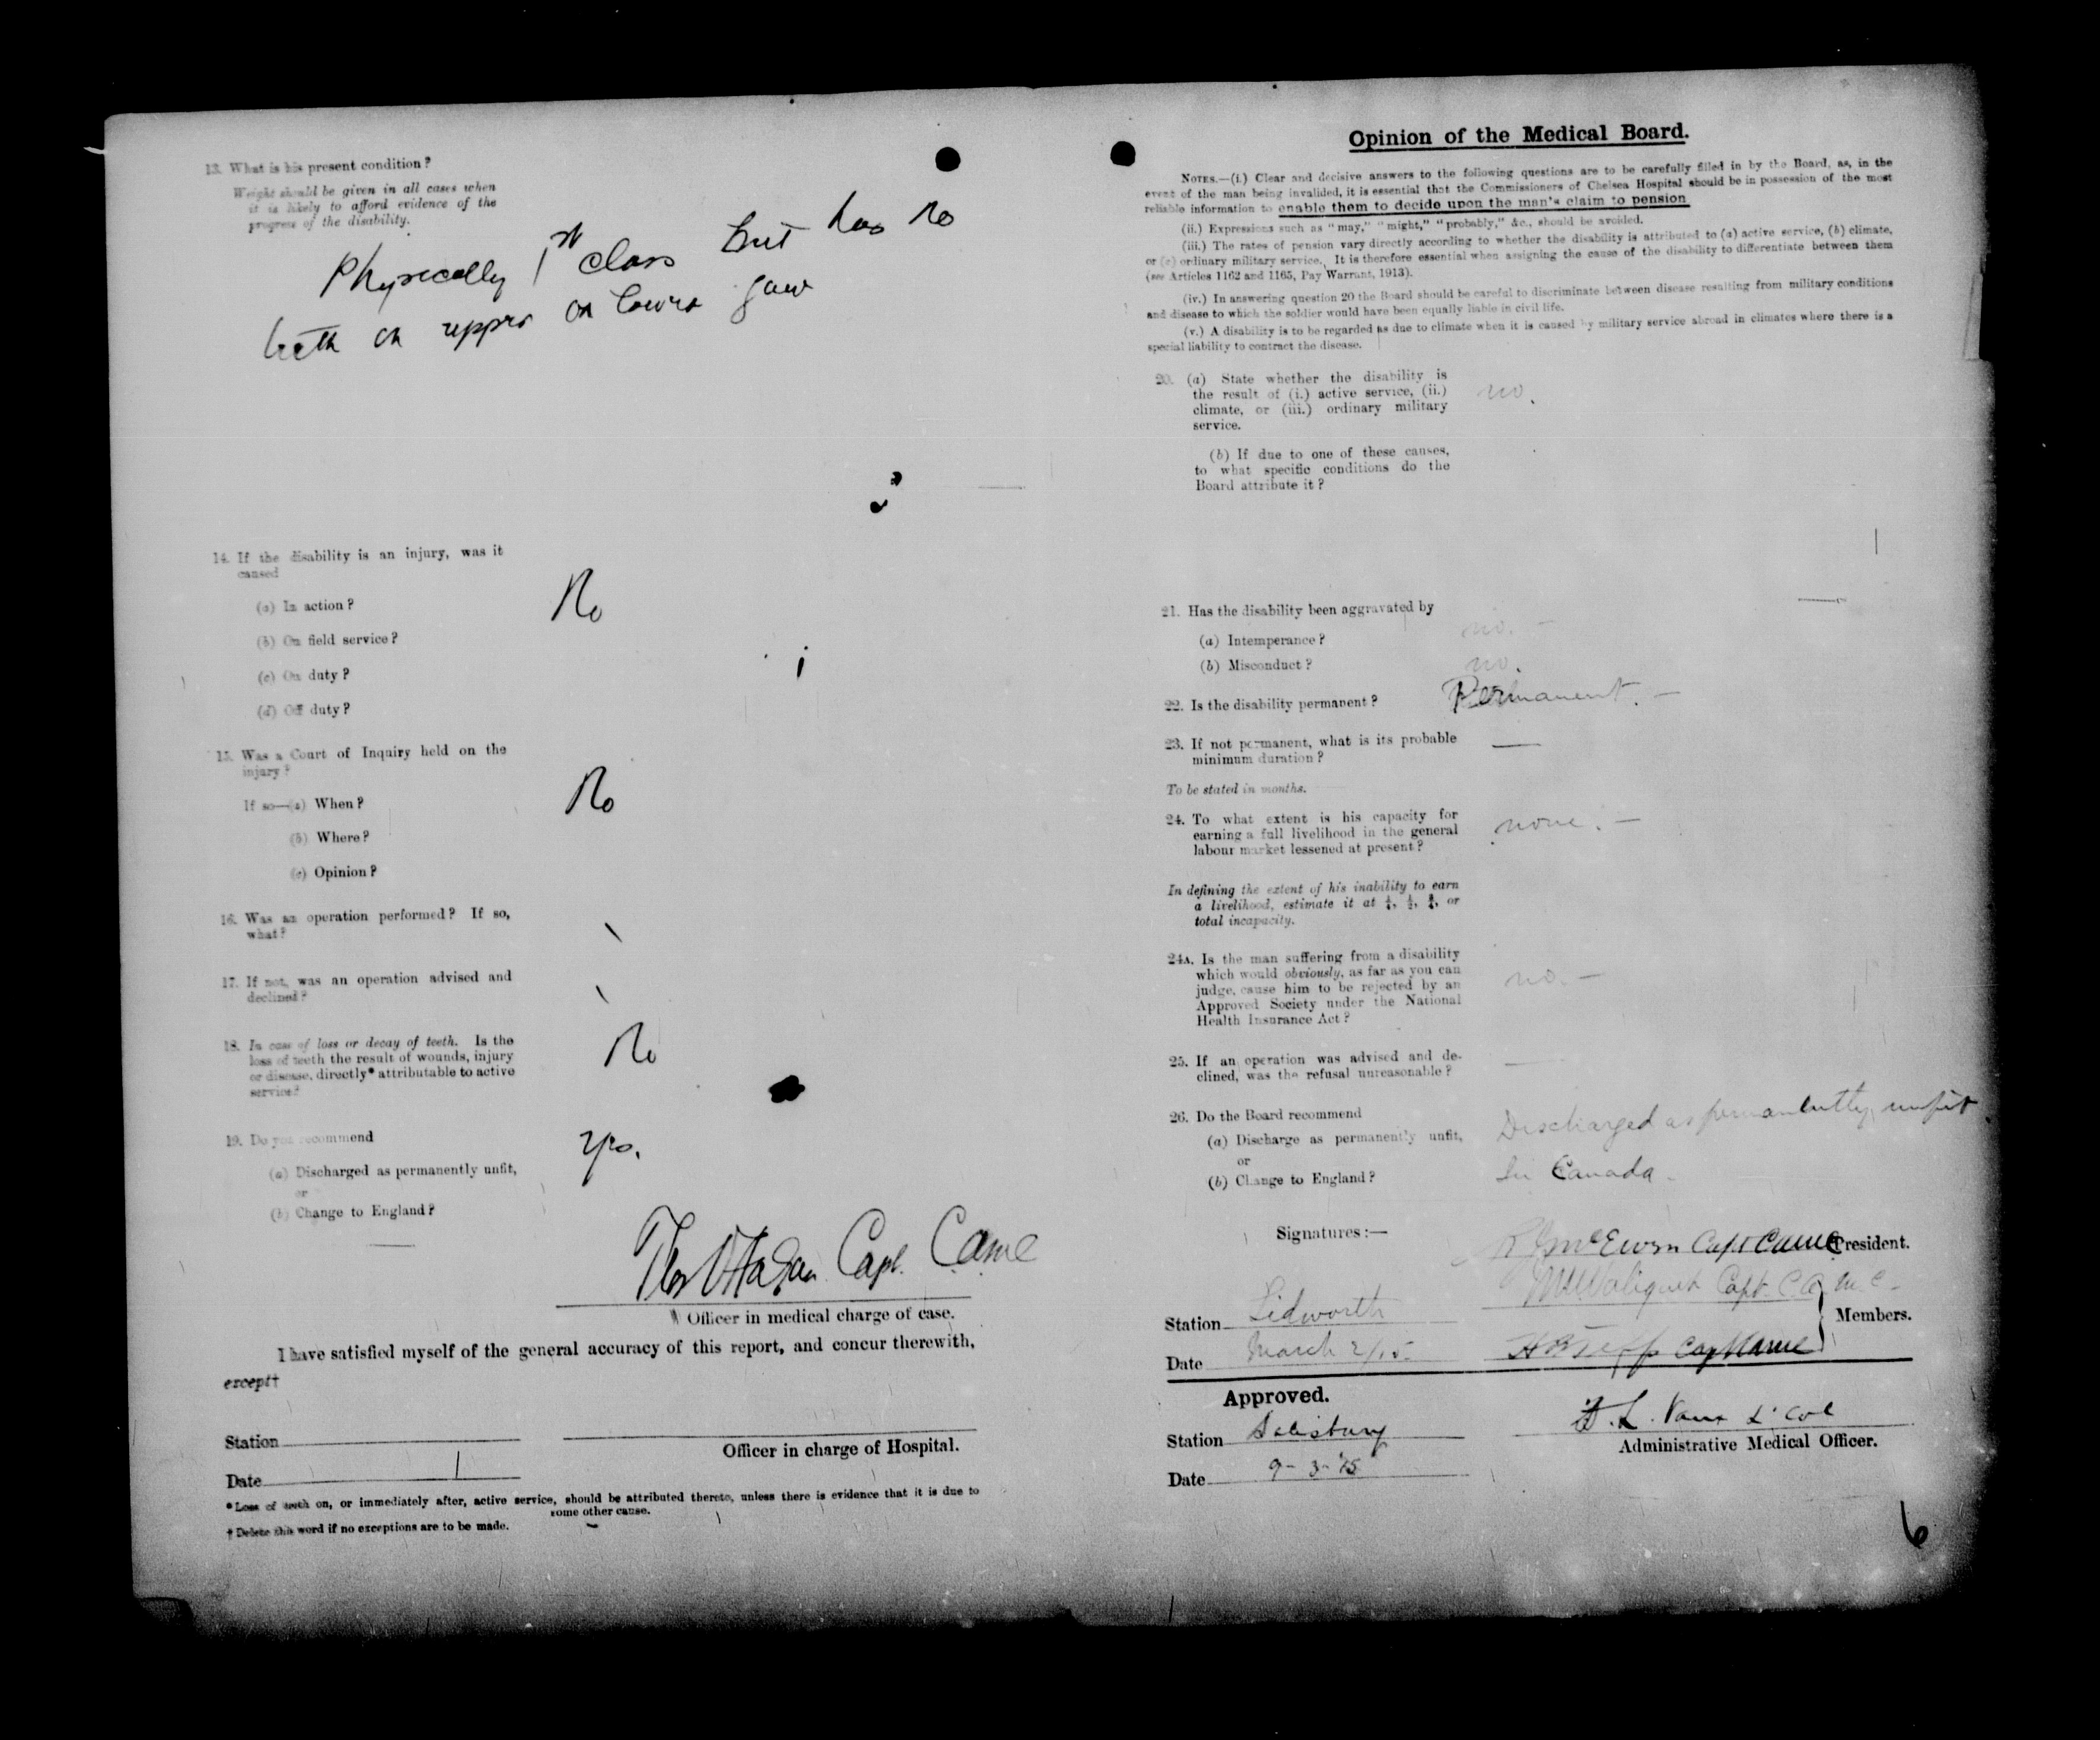 13. What is his present condition?
Weight should be given in all cases when
it is likely to afford evidence of the
progress of the disability.
Physically 1st class but has no
teeth on upper or lower jaw
14. If the disability is an injury, was it
caused
(a) In action?
No
(b) On field service?
(c) On duty?
(d) Off duty?
15. Was a Court of Inquiry held on the
injury?
If so—(a) When?
No
(b) Where?
(c) Opinion?
16. Was an operation performed? If so,
what?
17. If not, was an operation advised and
declined?
18. In case of loss or decay of teeth. Is the
loss of teeth the result of wounds, injury
or disease, directly* attributable to active
service?
No
19. Do you recommend
yes.
(a) Discharged as permanently unfit,
or
(b) Change to England?
Capt. Camc
Officer in medical charge of case.
I have satisfied myself of the general accuracy of this report, and concur therewith,
except†
Station
Officer in charge of Hospital.
Date
*Loss of teeth on, or immediately after, active service, should be attributed thereto, unless there is evidence that it is due to
some other cause.
† Delete this word if no exceptions are to be made.
Opinion of the Medical Board.
NOTES.—(i.) Clear and decisive answers to the following questions are to be carefully filled in by the Board, as, in the
event of the man being invalided, it is essential that the Commissioners of Chelsea Hospital should be in possession of the most
reliable information to enable them to decide upon the man's claim to pension
(ii.) Expressions such as "may," "might," "probably," &c., should be avoided.
(iii.) The rates of pension vary directly according to whether the disability is attributed to (a) active service, (b) climate,
or (c) ordinary military service. It is therefore essential when assigning the cause of the disability to differentiate between them
(see Articles 1162 and 1165, Pay Warrant, 1913).
(iv.) In answering question 20 the Board should be careful to discriminate between disease resulting from military conditions
and disease to which the soldier would have been equally liable in civil life.
(v.) A disability is to be regarded as due to climate when it is caused by military service abroad in climates where there is a
special liability to contract the disease.
20. (a) State whether the disability is
the result of (i.) active service, (ii.)
climate, or (iii.) ordinary military
service.
no.
(b) If due to one of these causes,
to what specific conditions do the
Board attribute it?
21. Has the disability been aggravated by
(a) Intemperance?
no. —
(b) Misconduct?
no.
22. Is the disability permanent?
Permanent. —
23. If not permanent, what is its probable
minimum duration?
—
To be stated in months.
24. To what extent is his capacity for
earning a full livelihood in the general
labour market lessened at present?
none. —
In defining the extent of his inability to earn
a livelihood, estimate it at ¼, ½, ¾, or
total incapacity.
24A. Is the man suffering from a disability
which would obviously, as far as you can
judge, cause him to be rejected by an
Approved Society under the National
Health Insurance Act?
no. —
25. If an operation was advised and de-
clined, was the refusal unreasonable?
—
26. Do the Board recommend
(a) Discharge as permanently unfit,
or
(b) Change to England?
Discharged as permanently unfit
in Canada.
Signatures:—
McEwen Capt Camc President.
Capt. C.A.M.C.
Members.
Station Tidworth
Date March 2/15
Approved.
Station Salisbury
Administrative Medical Officer.
Date 9-3-15
6